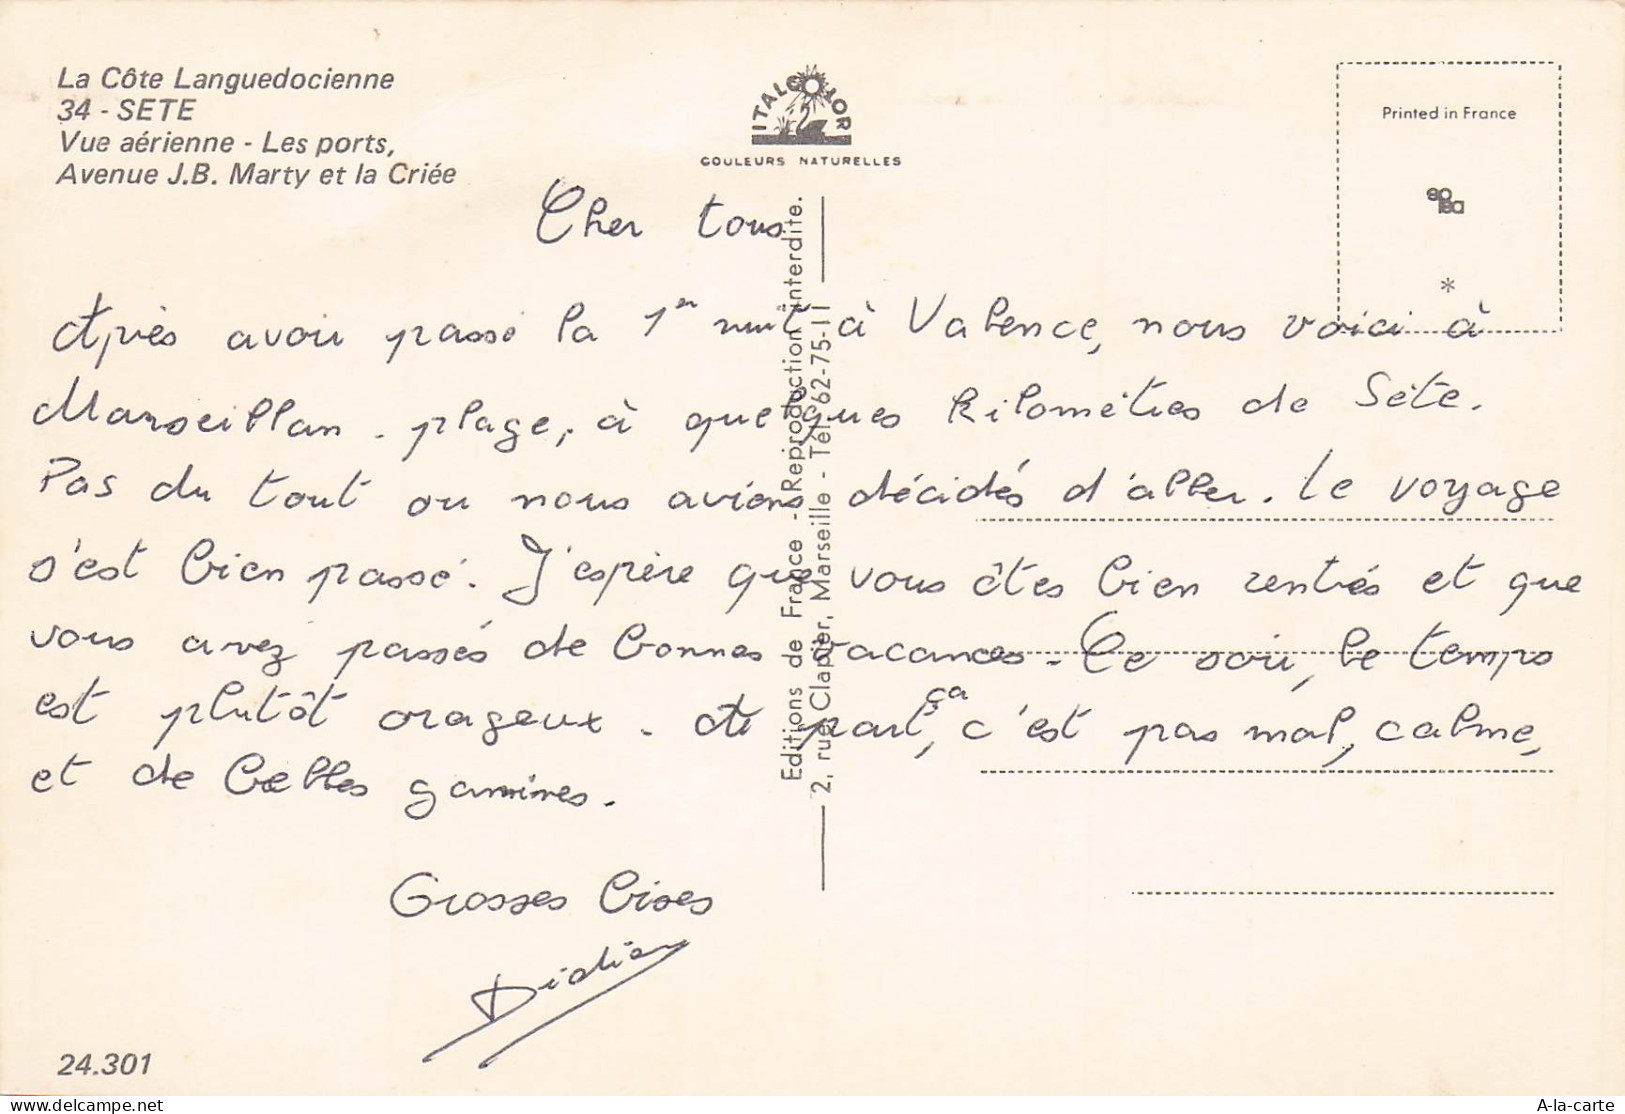 La Côte Languedocienne
34 - SETE
Vue aérienne - Les ports,
Avenue J.B. Marty et la Criée
ITALCOLOR
COULEURS NATURELLES
Printed in France
*
Editions de France - Reproduction interdite.
2, rue Clapier, Marseille - Tél. 62-75-11
Cher tous
Après avoir passé la 1er nuit à Valence, nous voici à
Marseillan-plage, à quelques kilomètres de Sète.
Pas du tout ou nous avions décidés d'aller. Le voyage
s'est bien passé. J'espère que vous êtes bien rentrés et que
vous avez passés de bonnes vacances. Ce soir, le temps
est plutôt orageux. A part ça, c'est pas mal, calme,
et de belles gamines.
Grosses bises
Didier
24.301
A-la-carte